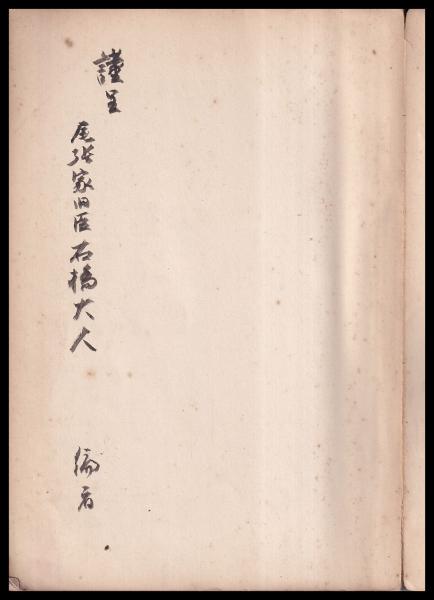 謹呈
尾張家旧臣石橋大人
編者